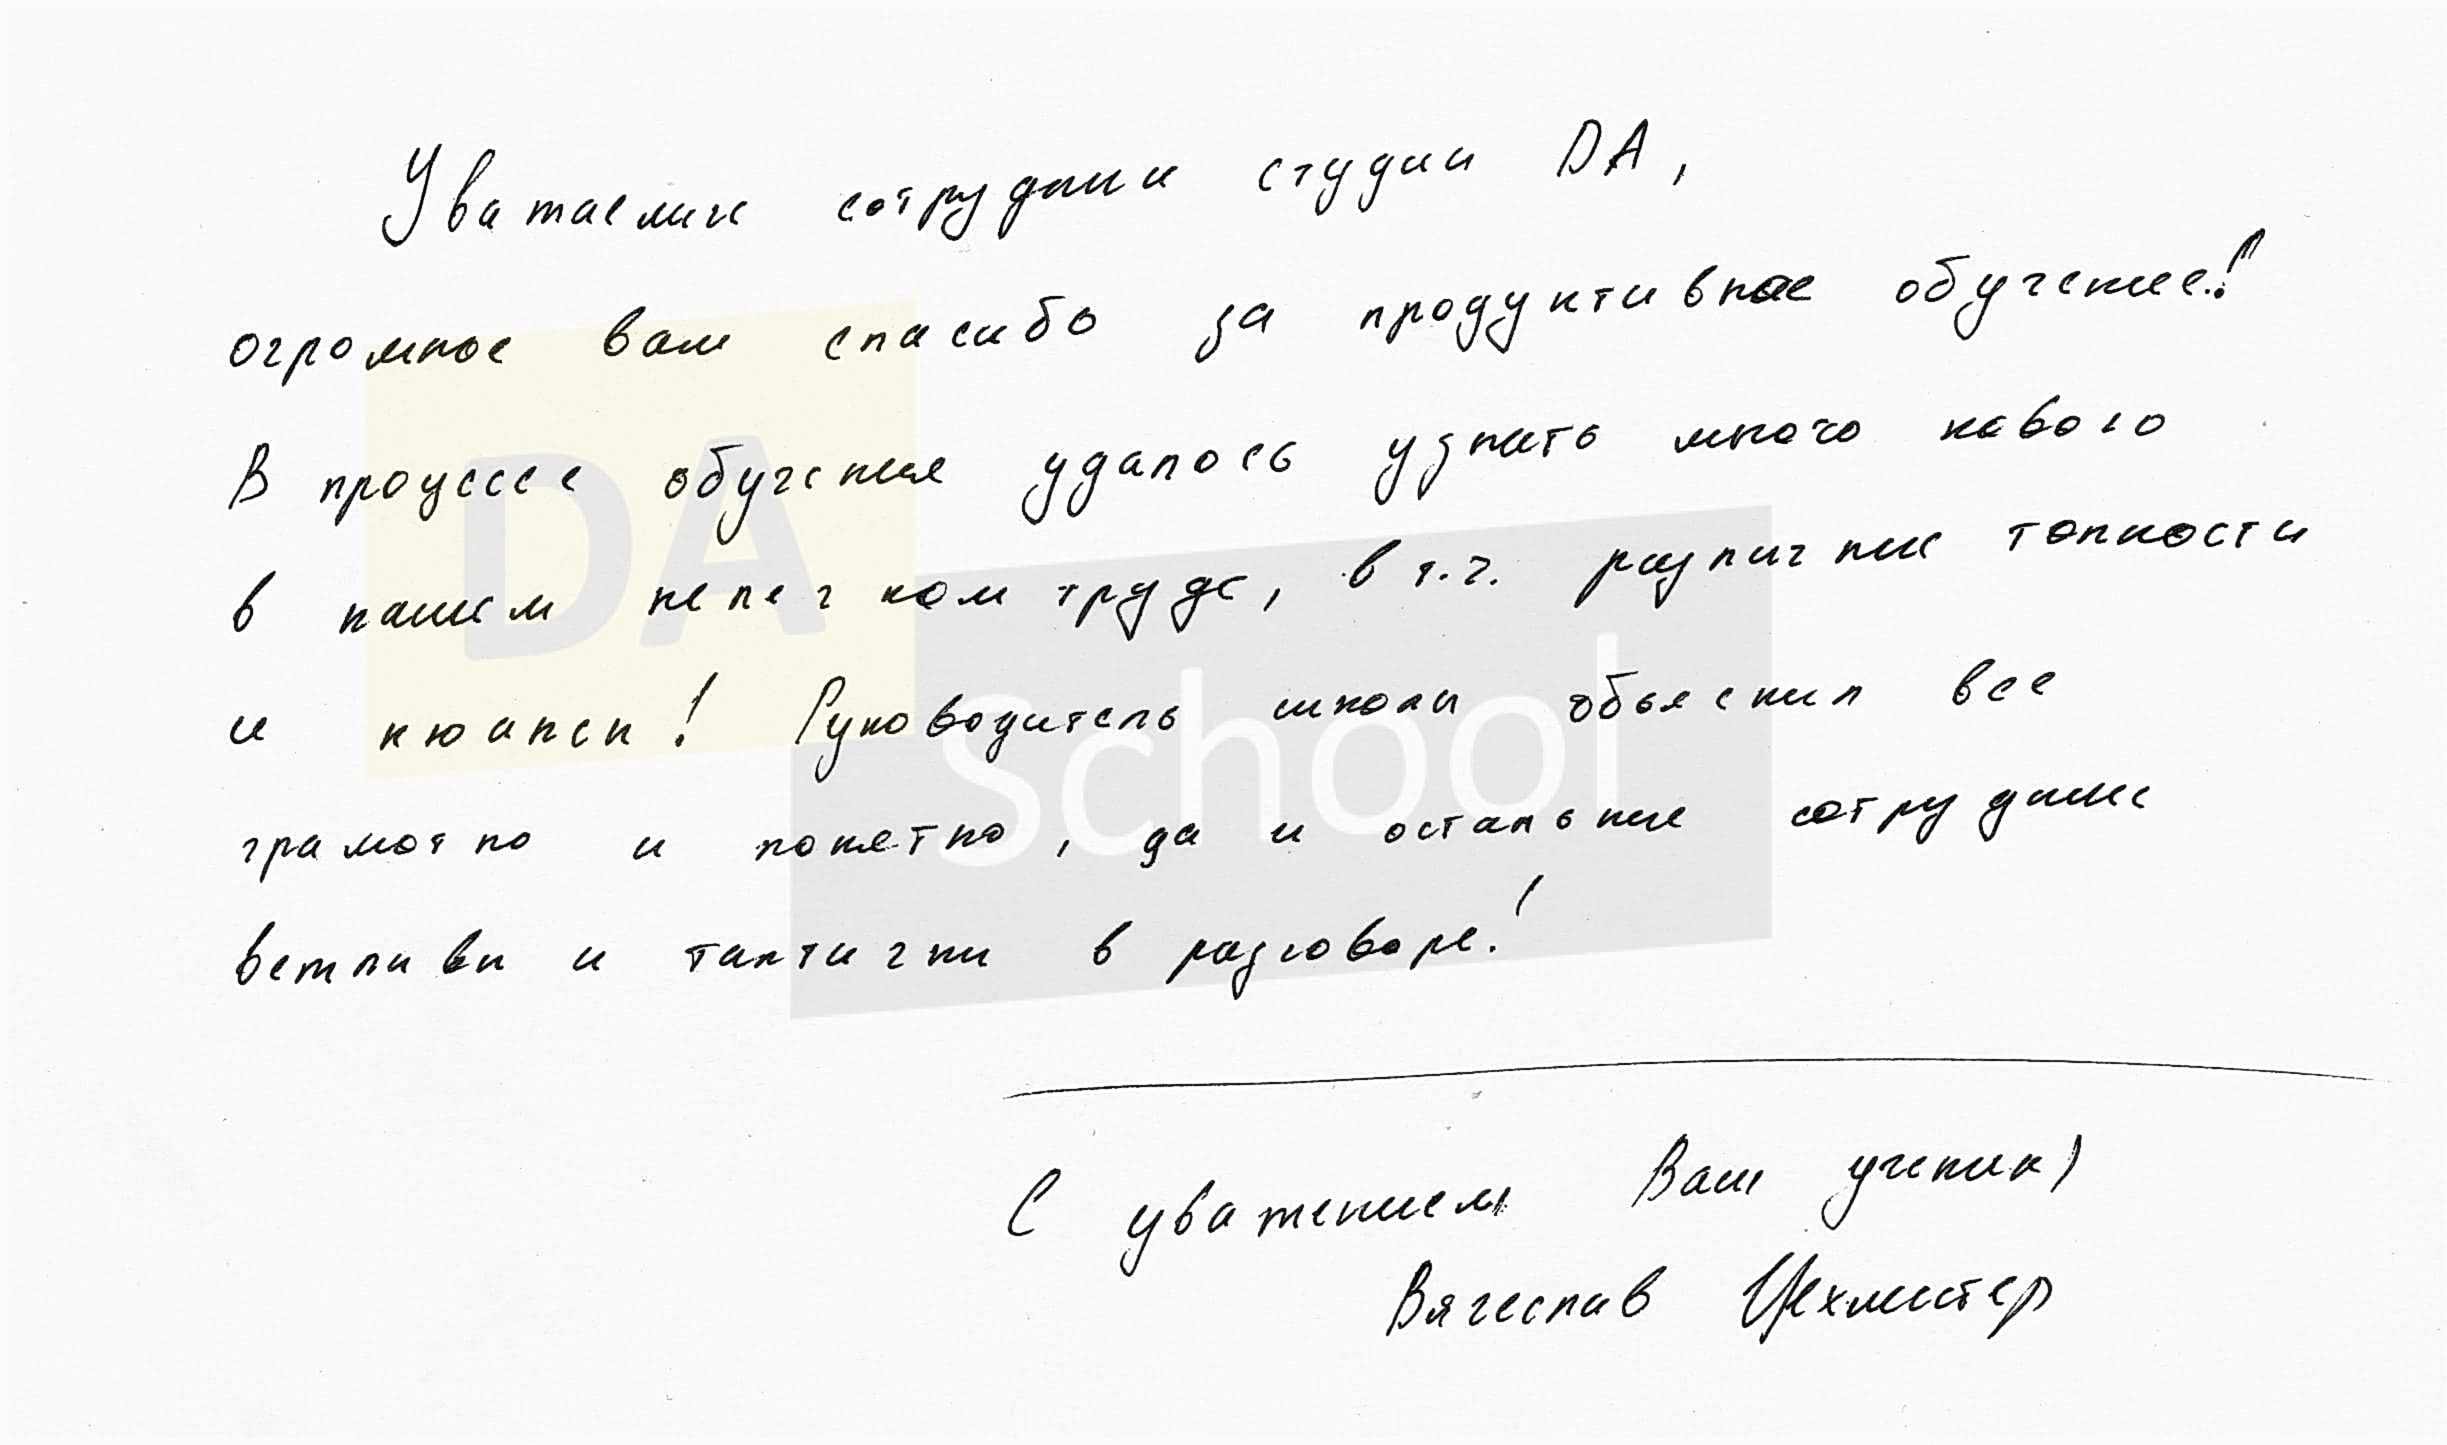 Уважаемые сотрудники студии DA,
огромное вам спасибо за продуктивное обучение!
В процессе обучения удалось узнать много нового
в нашем нелегком труде, в т.ч. различные тонкости
и нюансы! Руководитель школы объяснил все
грамотно и понятно, да и остальные сотрудники
вежливы и тактичны в разговоре!
DA
School
С уважением Ваш ученик)
Вячеслав Цехмистер